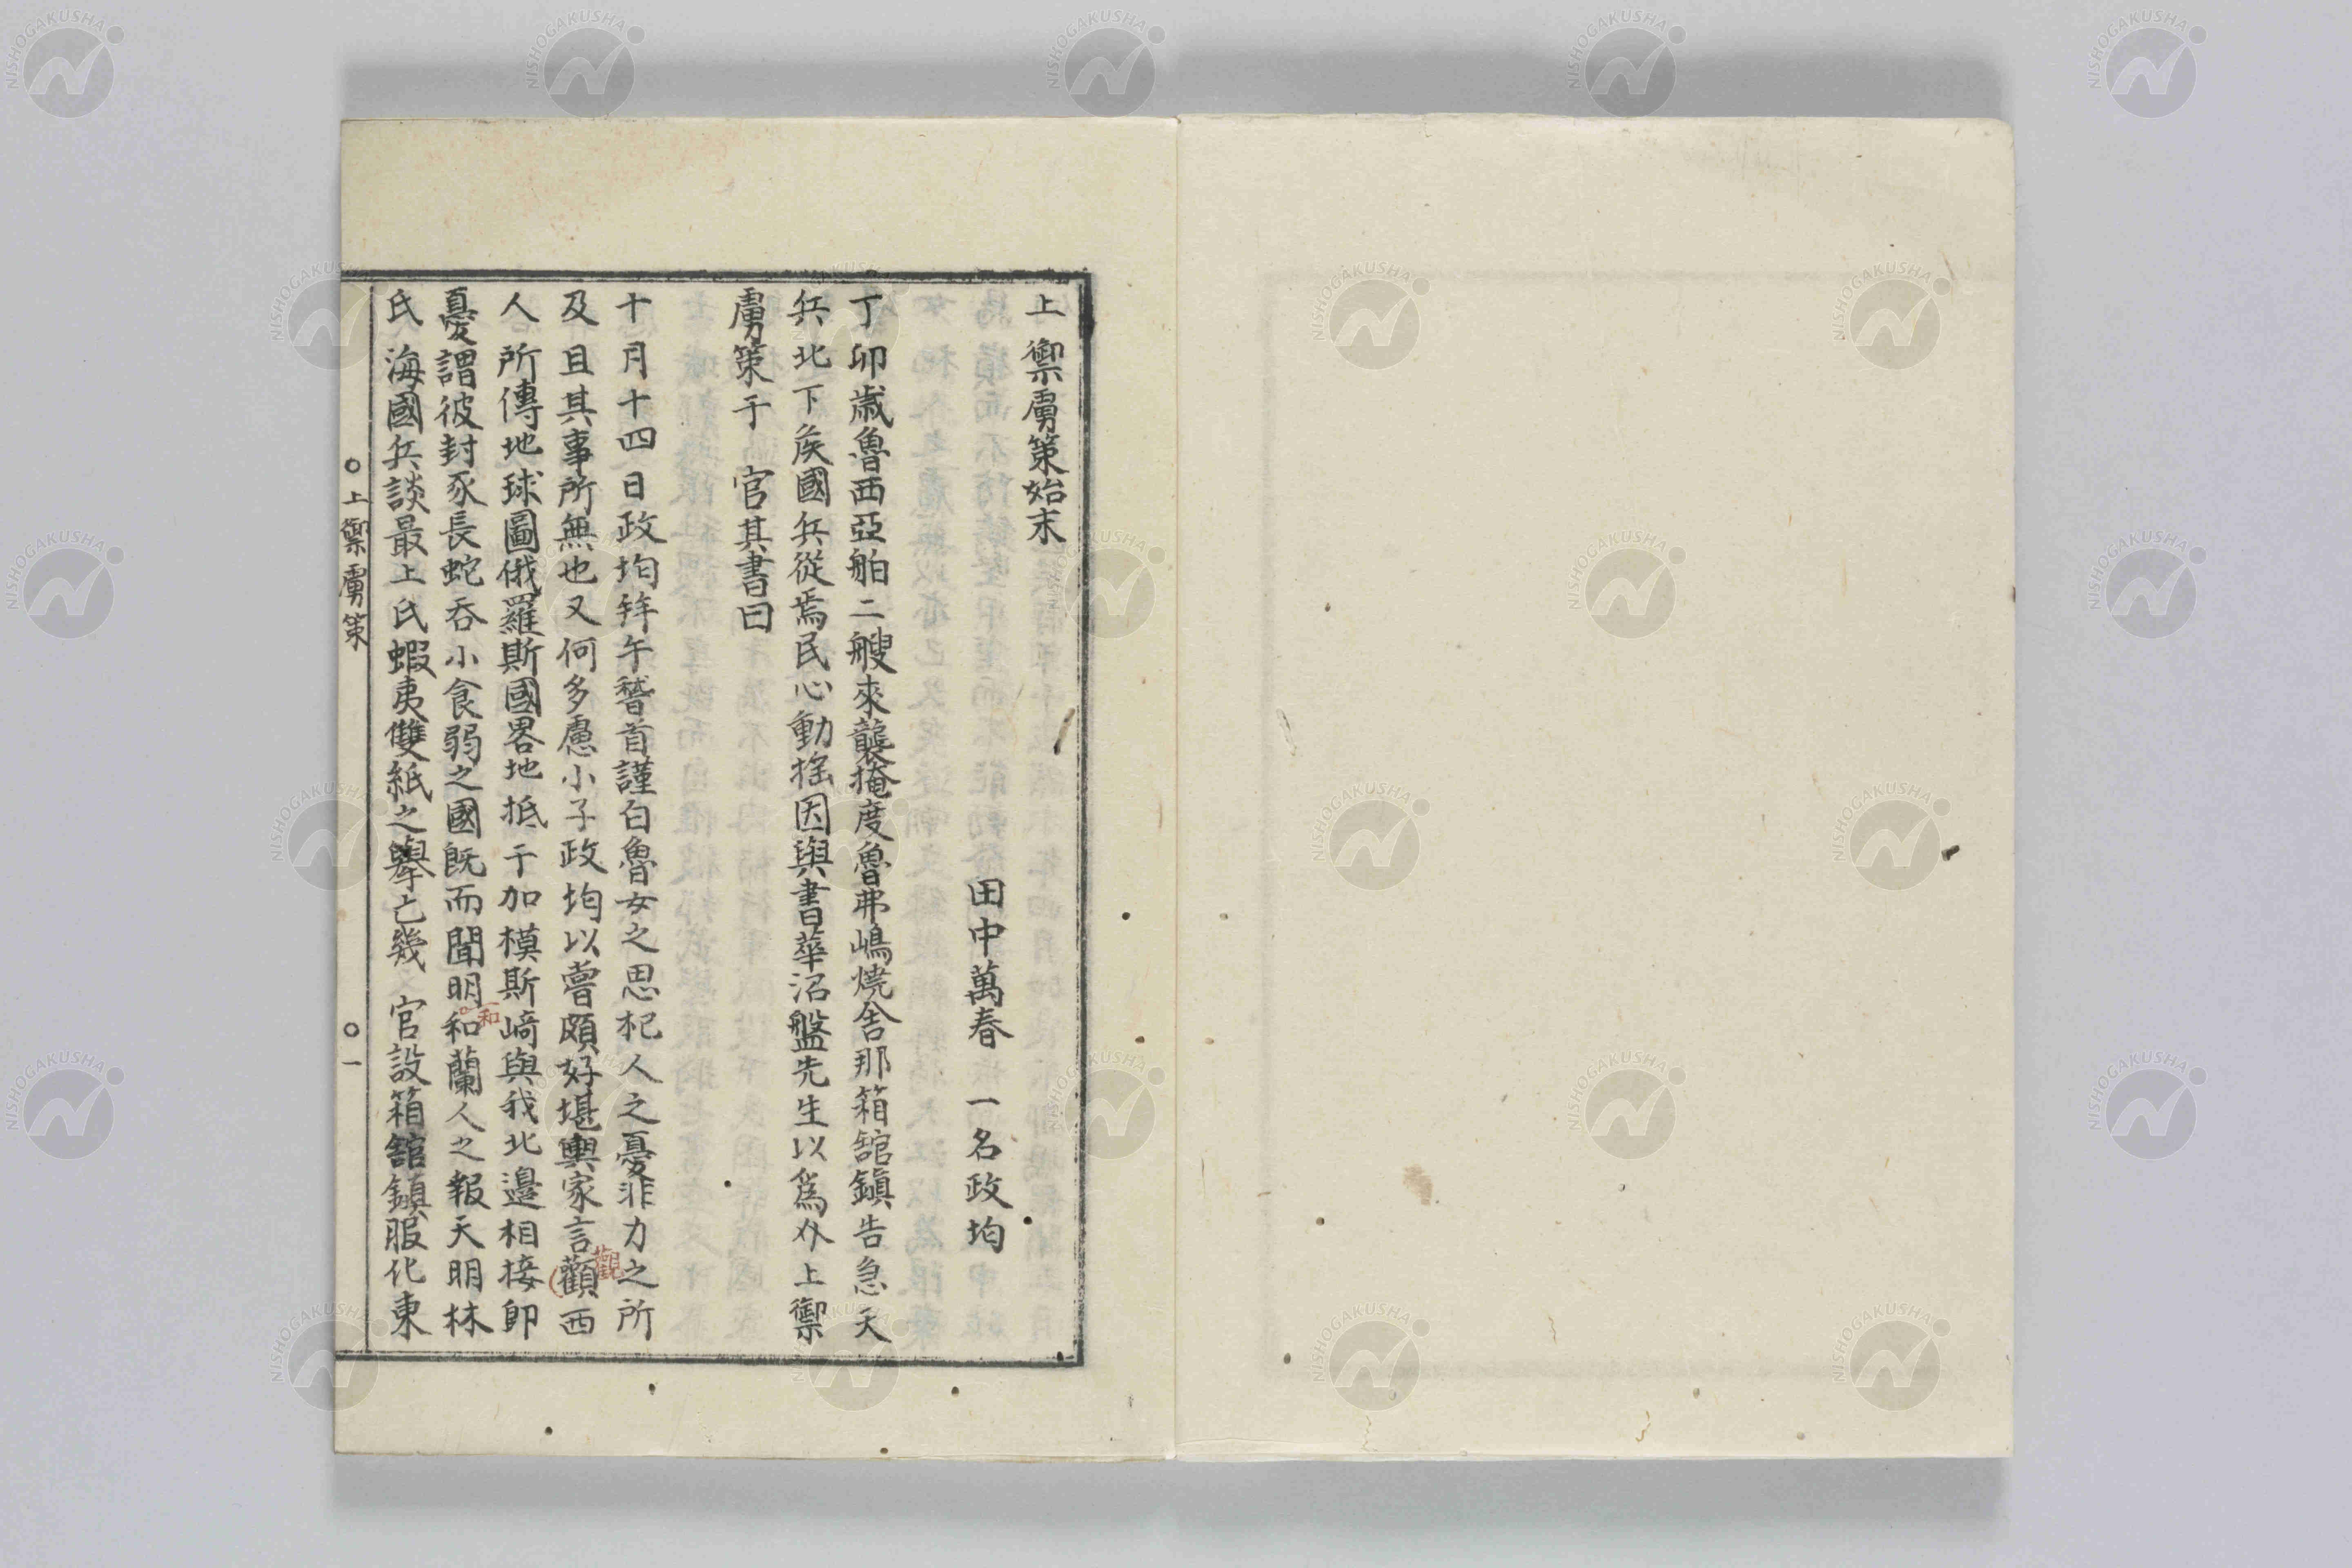 上禦虜策始末
田中萬春 一名政均
丁卯歳魯西亞舶二艘來襲掩度魯弗嶋燒舎那箱舘鎭告急天
兵北下矦國兵從焉民心動揺因與書華沼盤先生以爲外上禦
虜策于 官其書曰
十月十四日政均拜午稽首謹白魯女之思杞人之憂非力之所
及且其事所無也又何多慮小子政均以嘗頗好堪輿家言顴西
觀
人所傳地球圖俄羅斯國畧地抵于加模斯﨑與我北邉相接卽
憂謂彼封豕長蛇呑小食弱之國既而聞明和蘭人之報天明林
和
氏海國兵談最上氏蝦夷雙紙之擧亡幾 官設箱舘鎭服化東
○上禦虜策 ○一
NISHOGAKUSHA